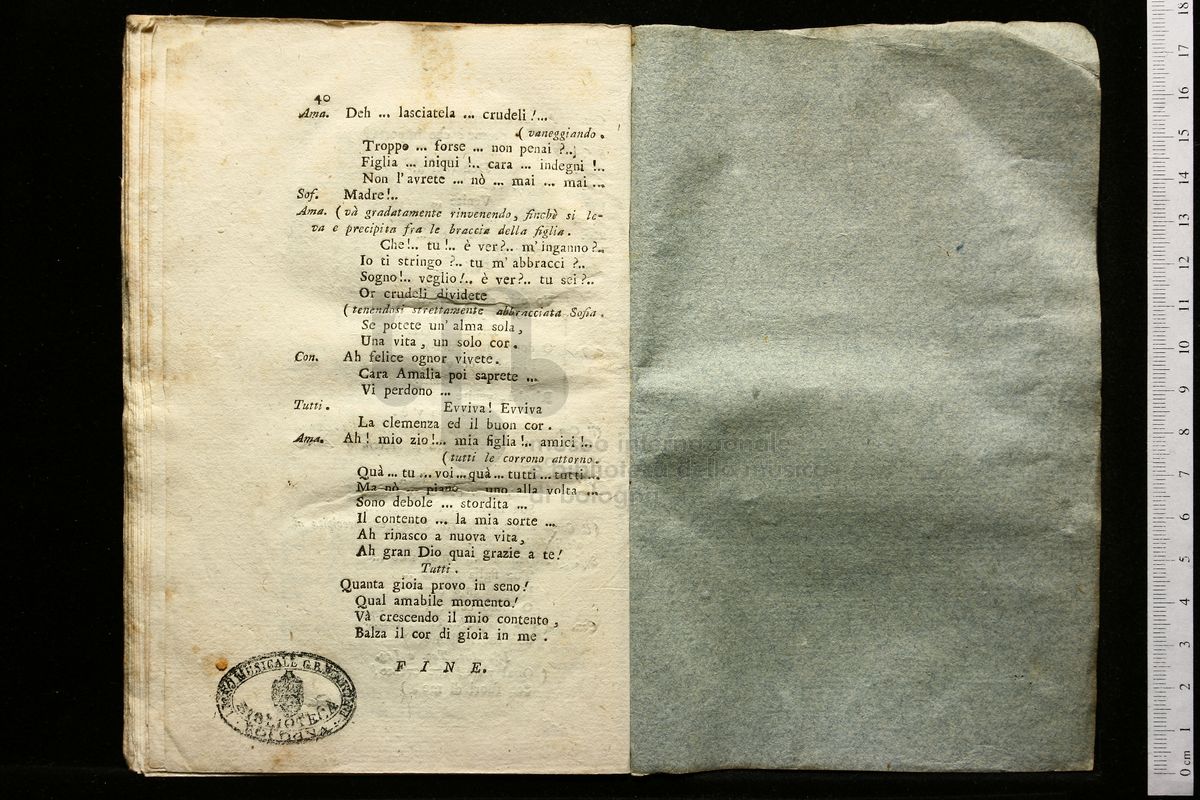 40
Ama. Deh ... lasciatela ... crudeli !...
( vaneggiando .
Troppo ... forse ... non penai ?..
Figlia ... iniqui !.. cara ... indegni !..
Non l'avrete ... nò ... mai ... mai ...
Sof. Madre!..
Ama. ( và gradatamente rinvenendo, finchè si le-
va e precipita fra le braccia della figlia .
Che!.. tu!.. è ver?.. m'inganno?..
Io ti stringo ?.. tu m'abbracci ?..
Sogno!.. veglio!.. è ver?.. tu sei?..
Or crudeli dividete
( tenendosi strettamente abbracciata Sofia .
Se potete un' alma sola,
Una vita, un solo cor.
Con. Ah felice ognor vivete.
Cara Amalia poi saprete ...
Vi perdono ...
Tutti. Evviva! Evviva
La clemenza ed il buon cor.
Ama. Ah! mio zio!... mia figlia!.. amici!..
( tutti le corrono attorno.
Quà ... tu ... voi ... quà ... tutti ... tutti ...
Ma nò ... piano ... uno alla volta ...
Sono debole ... stordita ...
Il contento ... la mia sorte ...
Ah rinasco a nuova vita,
Ah gran Dio quai grazie a te!
Tutti.
Quanta gioia provo in seno!
Qual amabile momento!
Và crescendo il mio contento,
Balza il cor di gioia in me.
FINE.
MUSICALE G.B. MARTINI
BIBLIOTECA
BOLOGNA
museo internazionale
e biblioteca della musica
di bologna
0 cm 1 2 3 4 5 6 7 8 9 10 11 12 13 14 15 16 17 18